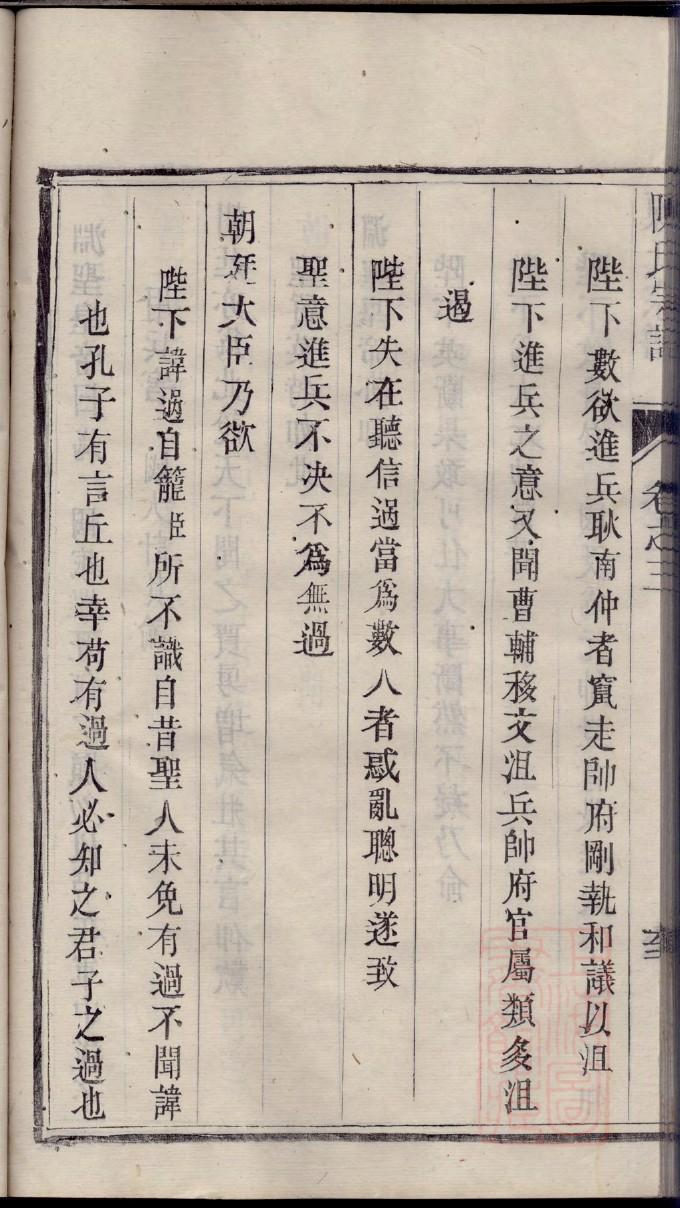 陳氏宗譜
卷之三
陛下數欲進兵耿南仲者竄走帥府剛執和議以沮
陛下進兵之意又聞曹輔移文沮兵帥府官屬類多沮
遏
陛下失在聽信過當爲數人者惑亂聰明遂致
聖意進兵不决不爲無過
朝廷大臣乃欲
陛下諱過自籠臣所不識自昔聖人未免有過不聞諱
也孔子有言丘也幸苟有過人必知之君子之過也